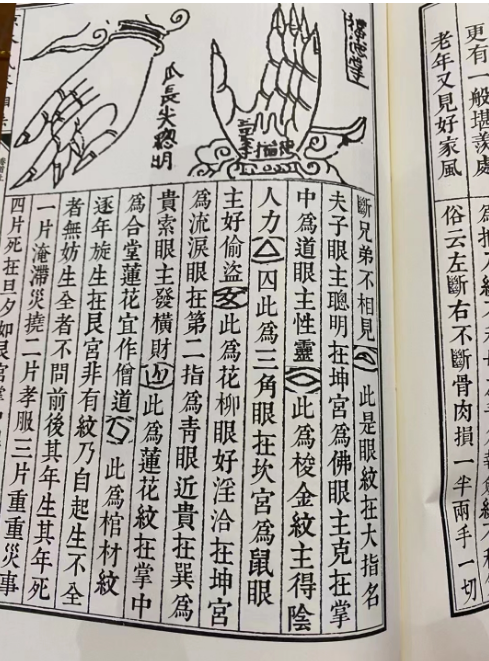 更有一般堪羨處
老年又見好家風
俗云左斷右不斷骨肉損一半兩手一切
瓜長尖聰明
斷兄弟不相見 此是眼紋在大指名
夫子眼主聰明在坤宮爲佛眼主克在掌
中爲道眼主性靈 此爲梭金紋主得陰
人力 囚此爲三角眼在坎宮爲鼠眼
主好偷盜 此爲花柳眼好淫洽在坤宮
爲流淚眼在第二指爲青眼近貴在巽爲
貴索眼主發橫財 此爲蓮花紋在掌中
爲合堂蓮花宜作僧道 此爲棺材紋
逐年旋生在艮宮非有紋乃自起生不全
者無妨生全者不問前後其年生其年死
一片淹滯災撓二片孝服三片重重災事
四片死在旦夕如艮宮